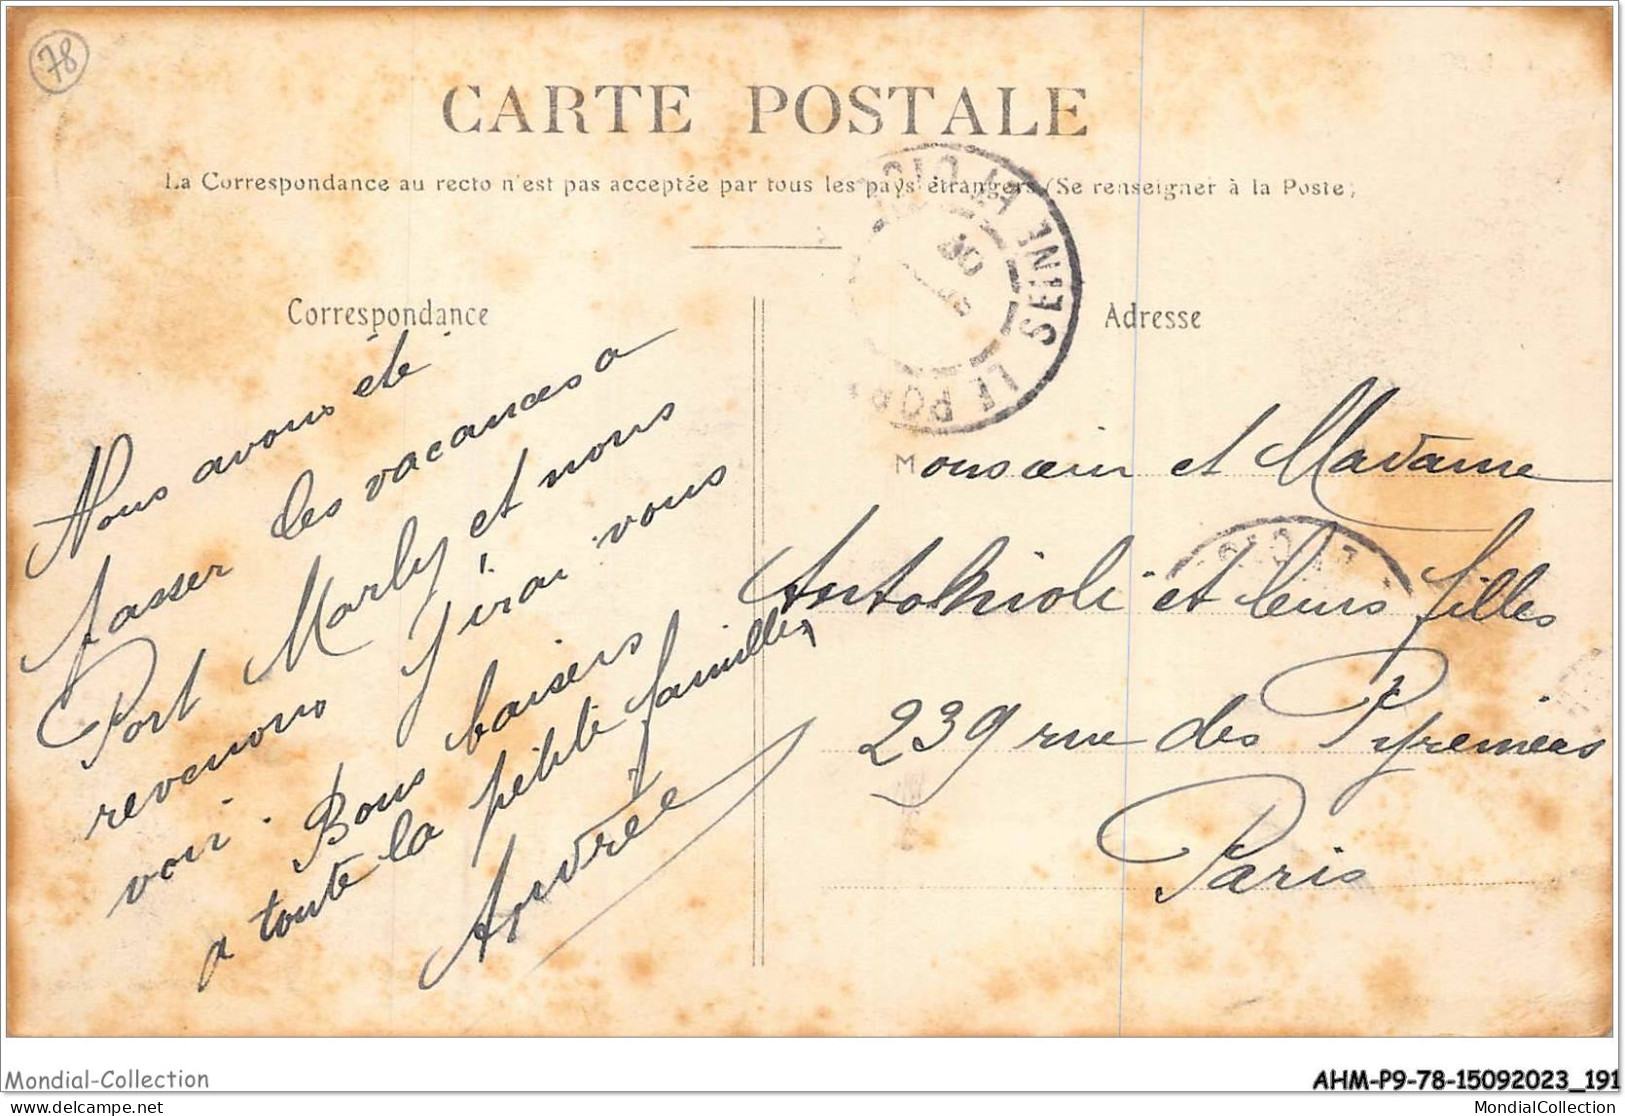 78
CARTE POSTALE
La Correspondance au recto n'est pas acceptée par tous les pays étrangers (Se renseigner à la Poste)
SEINE ET OISE
LE PORT
Correspondance
Nous avons été
passer les vacances a
Port Marly et nous
revenons J'irai vous
voir. Bons baisers
a toute la petite famille
Andrée
Adresse
Monsieur et Madame
Antoknioli et leurs filles
239 rue des Pyreniéés
Paris
Mondial-Collection
AHM-P9-78-15092023_191
MondialCollection
MondialCollection